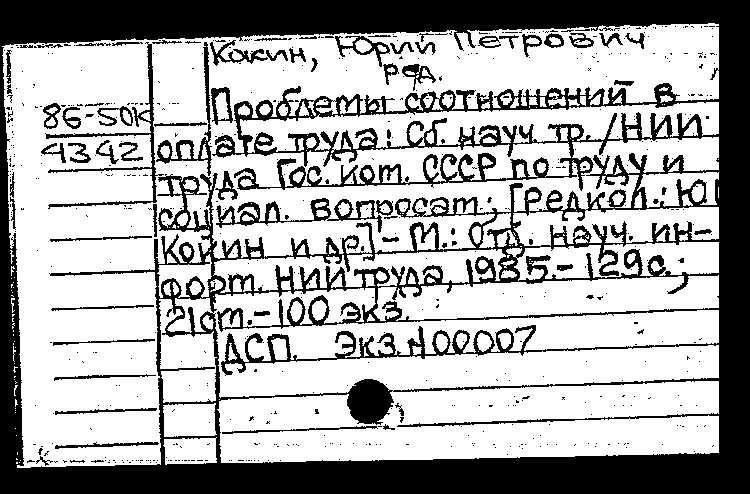 Кокин, Юрий Петрович
ред.
86-50К
4342
Проблемы соотношений в
оплате труда: Сб. науч. тр. /НИИ
труда Гос. ком. СССР по труду и
социал. вопросам; [Редкол.: Ю
Кокин и др.] - М.: Отд. науч. ин-
форм. НИИ труда, 1985. - 129с.;
21см. - 100 экз.
ДСП. Экз. N00007